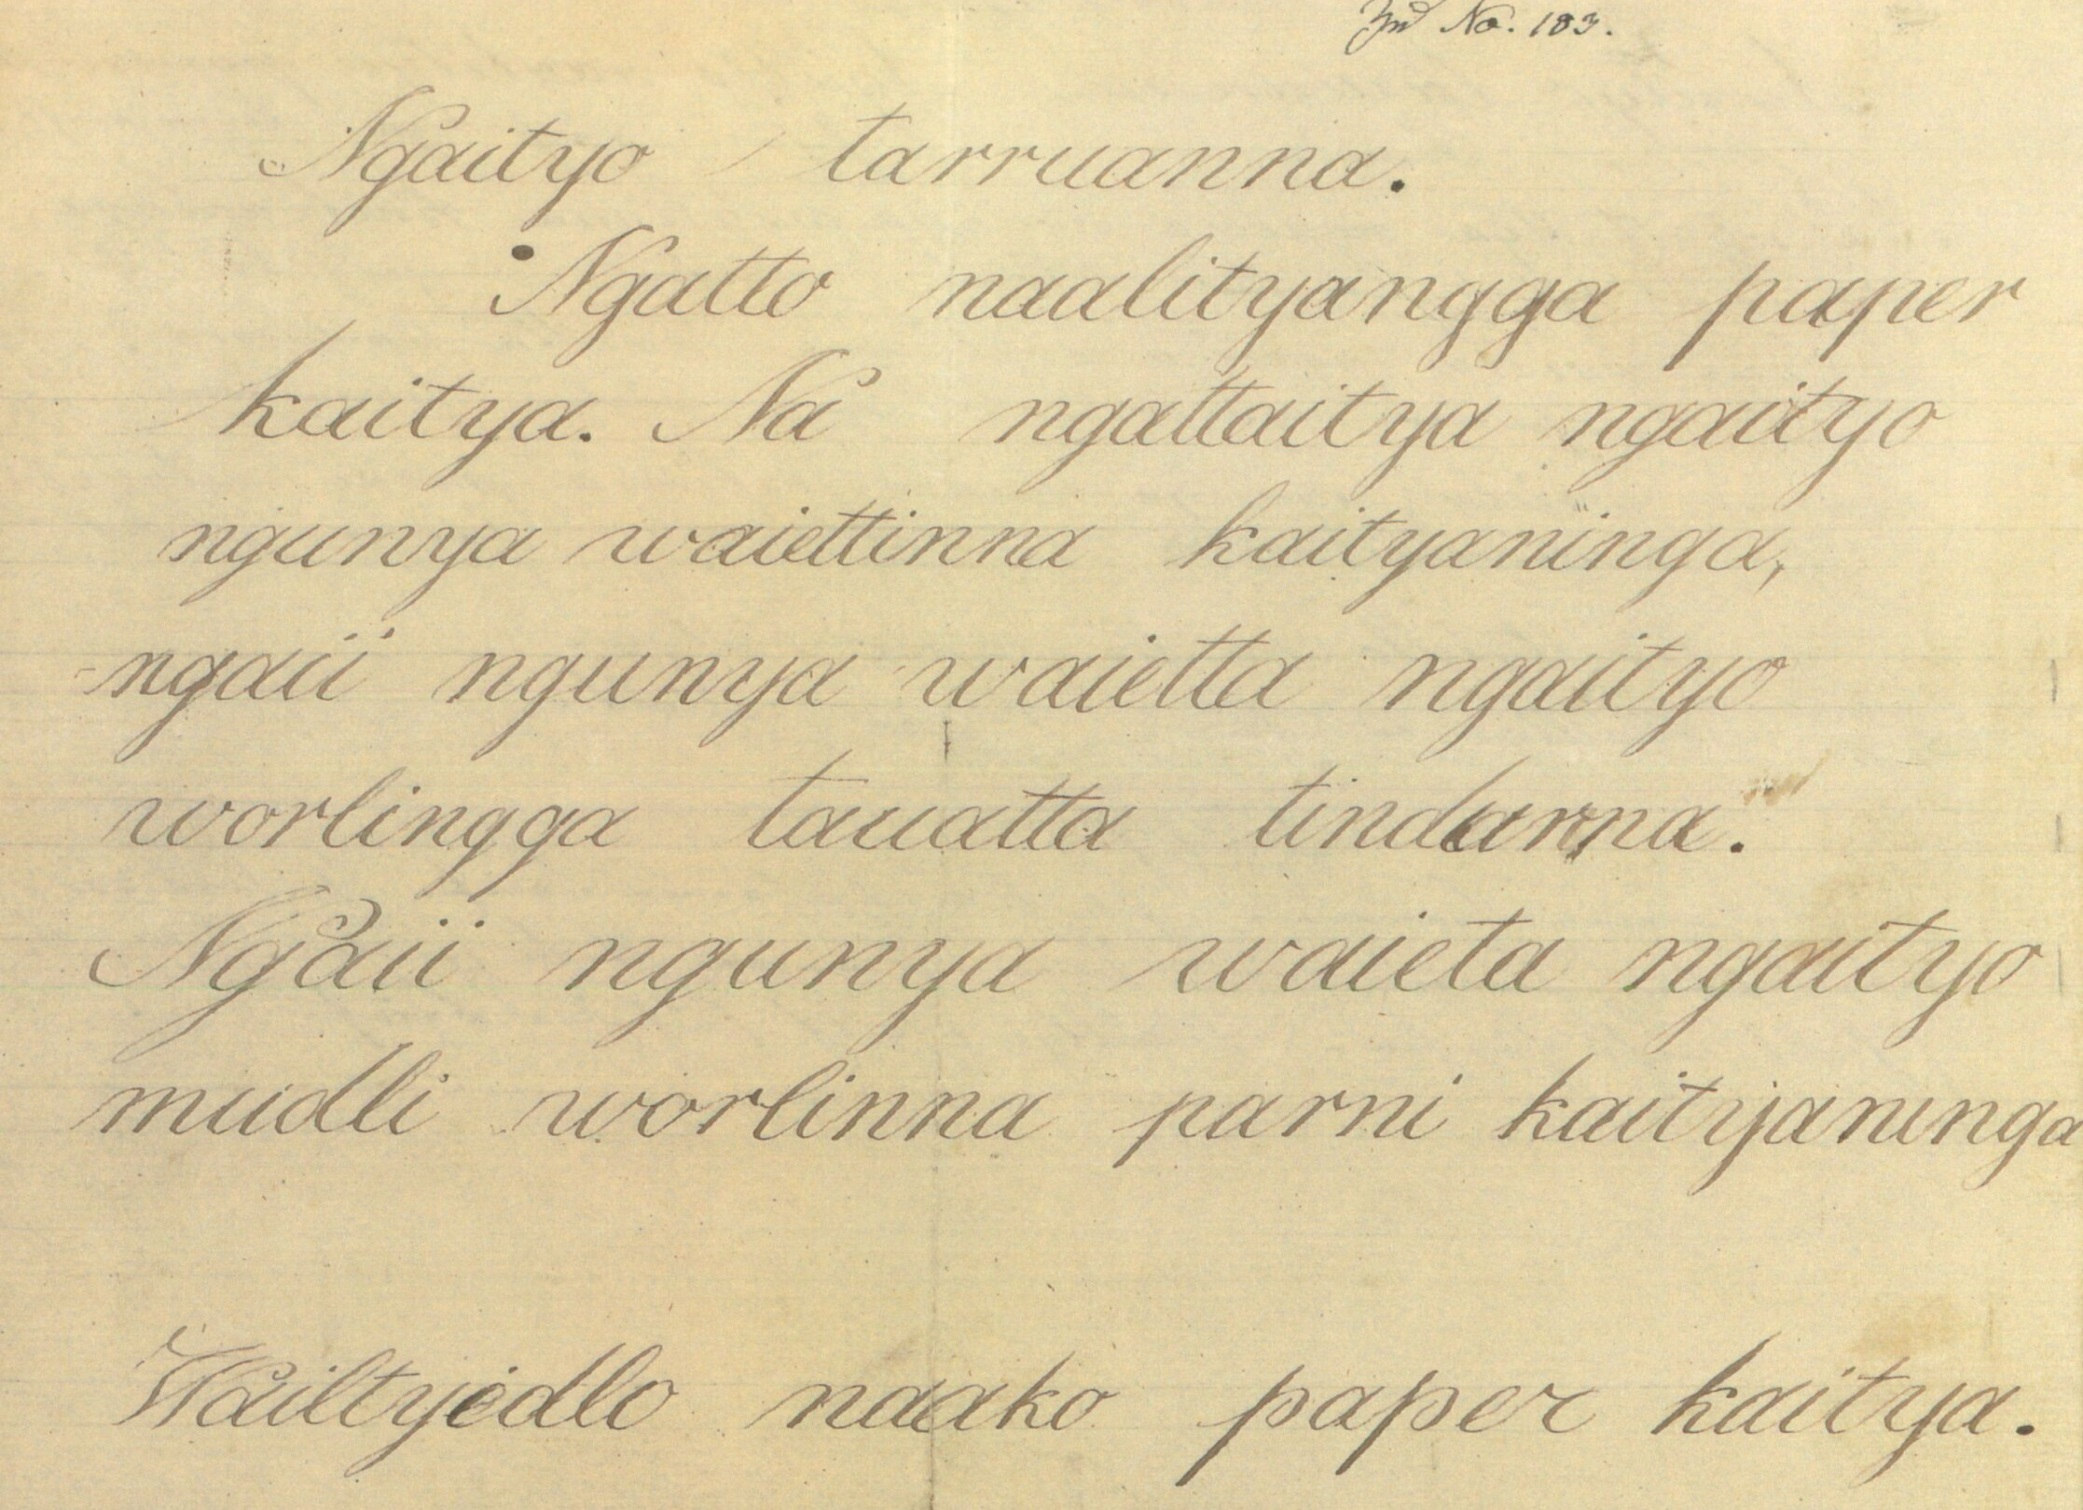 No. 183.
Ngaityo tarruanna.
Ngatto naalityangga paper
kaitya. Na ngattaitya ngaityo
ngunya waiettinna kaityaninga,
ngaii ngunya waietta ngaityo
worlingga tauatta tindanna.
Ngaii ngunya waieta ngaityo
mudli worlinna parni kaityaninga
Wailtyedlo naako paper kaitya.